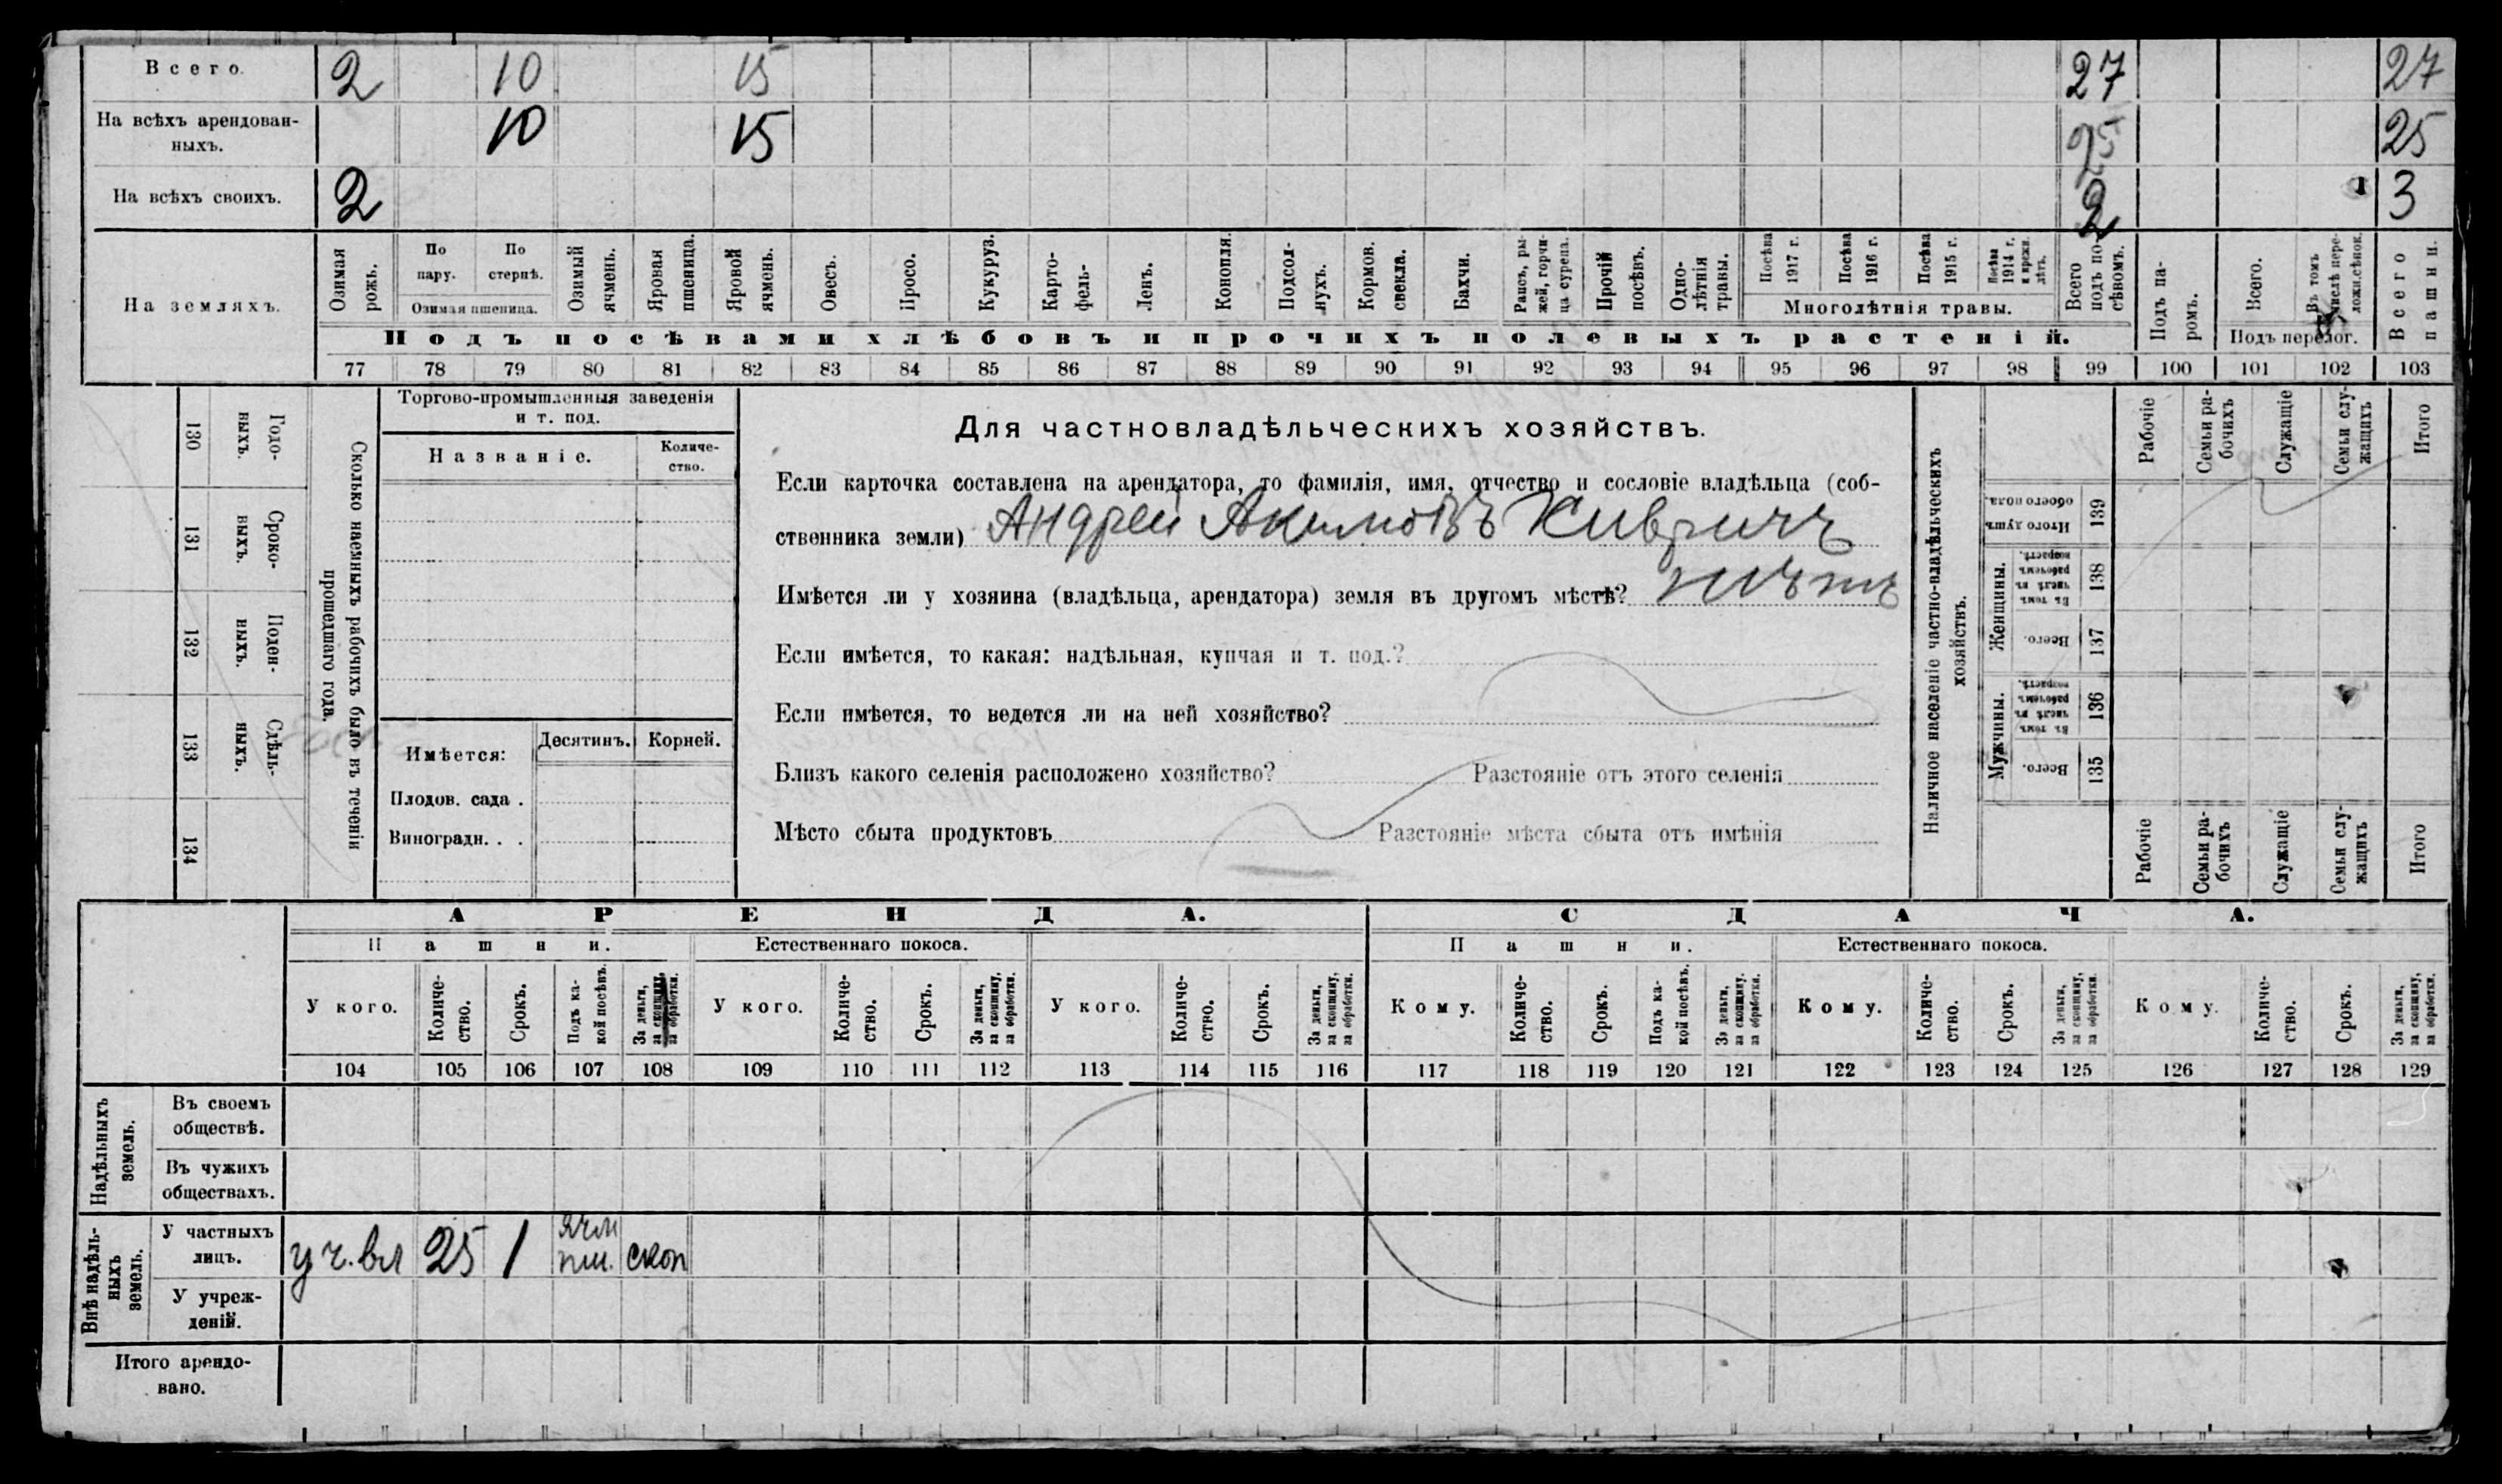 Всего. 2 10 15 27 27
На всѣхъ арендован-
ныхъ. 10 15 25 25
На всѣхъ своихъ. 2 2 1 3
На земляхъ.
Озимая
рожь.
По
пару.
По
стернѣ.
Озимая пшеница.
Озимый
ячмень.
Яровая
пшеница.
Яровой
ячмень.
Овесъ.
Просо.
Кукуруз.
Карто-
фель-
Ленъ.
Конопля.
Подсол-
нухъ.
Кормов.
свекла.
Бахчи.
Рапсъ, ры-
жей, горчи-
ца сурепа.
Прочій
посѣвъ.
Одно-
лѣтнія
травы.
Посѣва
1917 г.
Посѣва
1916 г.
Посѣва
1915 г.
Посѣва
1914 г.
и прежн.
лѣтъ.
Многолѣтнія травы.
Всего
подъ по-
сѣвомъ.
Подъ посѣвами хлѣбовъ и прочихъ полевыхъ растеній.
Подъ па-
ромъ.
Всего.
Въ томъ
числѣ пере-
ложн.сѣнок.
Подъ перелог.
Всего
пашни.
77 78 79 80 81 82 83 84 85 86 87 88 89 90 91 92 93 94 95 96 97 98 99 100 101 102 103
130 Годо-
ныхъ.
131 Сроко-
выхъ.
132 Поден-
ныхъ.
133 Сдѣль-
ныхъ.
134
Сколько наемныхъ рабочихъ было въ теченіи
прошедшаго года.
Торгово-промышленныя заведенія
и т. под.
Названіе.
Количе-
ство.
Имѣется:
Десятинъ. Корней.
Плодов. сада .
Виноградн. . .
Для частновладѣльческихъ хозяйствъ.
Если карточка составлена на арендатора, то фамилія, имя, отчество и сословіе владѣльца (соб-
ственника земли) Андрей Акимовъ
Имѣется ли у хозяина (владѣльца, арендатора) земля въ другомъ мѣстѣ? нѣтъ
Если имѣется, то какая: надѣльная, купчая и т. под.?
Если имѣется, то ведется ли на ней хозяйство?
Близъ какого селенія расположено хозяйство? Разстояніе отъ этого селенія
Мѣсто сбыта продуктовъ Разстояніе мѣста сбыта отъ имѣнія
Наличное населеніе частно-владѣльческихъ
хозяйствъ.
Рабочіе
Семьи ра-
бочихъ
Служащіе
Семьи слу-
жащихъ
Итого
Итого душъ
обоего пола.
139
Женщины.
Въ томъ
числѣ въ
рабочемъ
возрастѣ.
138
Всего.
137
Мужчины.
Въ томъ
числѣ въ
рабочемъ
возрастѣ.
136
Всего.
135
Рабочіе
Семьи ра-
бочихъ
Служащіе
Семьи слу-
жащихъ
Итого
АРЕНДА. СДАЧА.
Пашни. Естественнаго покоса. Пашни. Естественнаго покоса.
У кого.
Количе-
ство.
Срокъ.
Подъ ка-
кой посѣвъ.
За деньги,
за скопщину,
за обработки.
У кого.
Количе-
ство.
Срокъ.
За деньги,
за скопщину,
за обработки.
У кого.
Количе-
ство.
Срокъ.
За деньги,
за скопщину,
за обработки.
Кому.
Количе-
ство.
Срокъ.
Подъ ка-
кой посѣвъ.
За деньги,
за скопщину.
за обработки.
Кому.
Количе-
ство.
Срокъ.
За деньги,
за скопщину,
за обработки.
Кому.
Количе-
ство.
Срокъ.
За деньги,
за скопщину,
за обработки.
104 105 106 107 108 109 110 111 112 113 114 115 116 117 118 119 120 121 122 123 124 125 126 127 128 129
Надѣльныхъ
земель.
Въ своемъ
обществѣ.
Въ чужихъ
обществахъ.
Внѣ надѣль-
ныхъ
земель.
У частныхъ
лицъ.
у ч. вл 25 1 ячм
пш. скоп
У учреж-
деній.
Итого арендо-
вано.